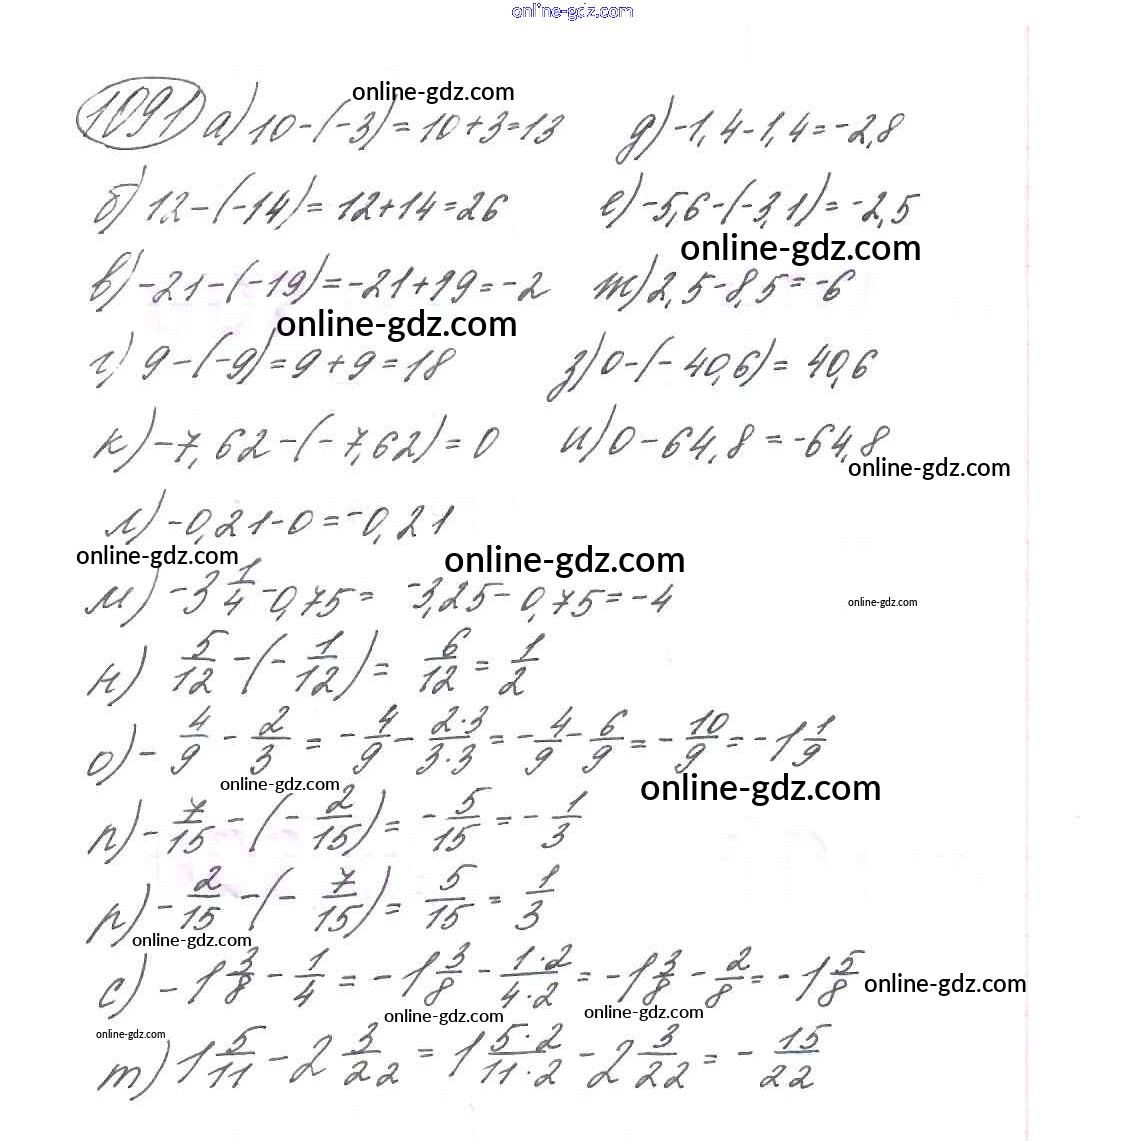 online-gdz.com
online-gdz.com
1091 а) 10-(-3)=10+3=13 д) -1,4-1,4=-2,8
б) 12-(-14)=12+14=26 е) -5,6-(-3,1)=-2,5
online-gdz.com
в) -21-(-19)=-21+19=-2 ж) 2,5-8,5=-6
online-gdz.com
г) 9-(-9)=9+9=18 з) 0-(-40,6)=40,6
к) -7,62-(-7,62)=0 и) 0-64,8=-64,8
online-gdz.com
л) -0,21-0=-0,21
online-gdz.com online-gdz.com
м) -3 1/4 -0,75= -3,25-0,75=-4
online-gdz.com
н) 5/12 -(- 1/12)= 6/12 = 1/2
о) - 4/9 - 2/3 = - 4/9 - 2·3/3·3 = - 4/9 - 6/9 = - 10/9 = -1 1/9
online-gdz.com online-gdz.com
п) - 7/15 -(- 2/15)= - 5/15 = - 1/3
р) - 2/15 -(- 7/15)= 5/15 = 1/3
online-gdz.com
с) -1 3/8 - 1/4 = -1 3/8 - 1·2/4·2 = -1 3/8 - 2/8 = -1 5/8 online-gdz.com
online-gdz.com online-gdz.com
online-gdz.com
т) 1 5/11 - 2 3/22 = 1 5·2/11·2 - 2 3/22 = - 15/22